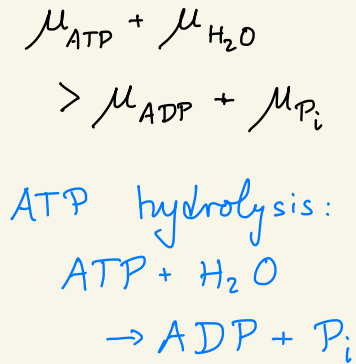 μ_ATP + μ_H₂O
> μ_ADP + μ_Pᵢ
ATP hydrolysis:
ATP + H₂O
→ ADP + Pᵢ